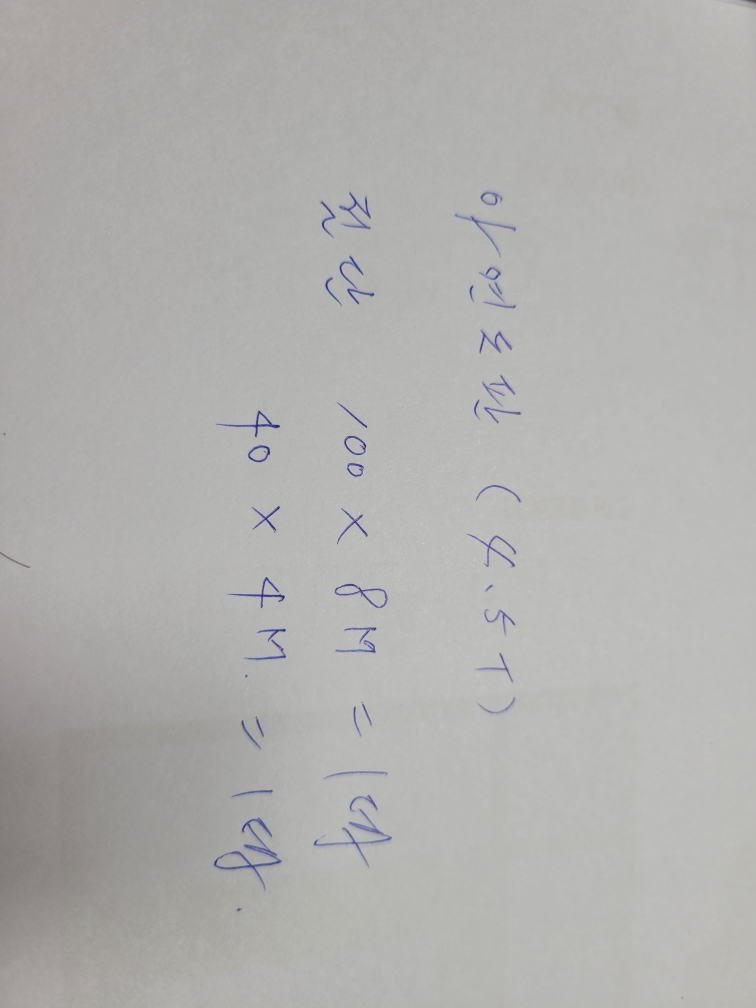 아연도판 (4.5T)
100 x 8M = 1ea
40 x 4M = 1ea.